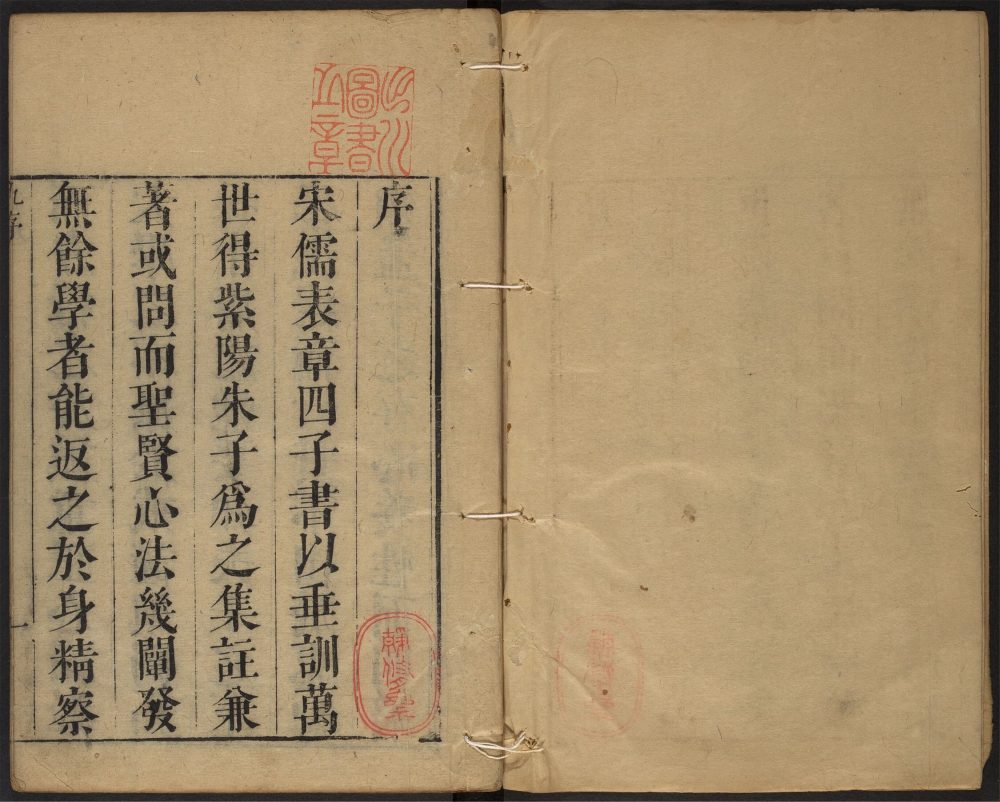 序
宋儒表章四子書以垂訓萬
世得紫陽朱子爲之集註兼
著或問而聖賢心法幾闡發
無餘學者能返之於身精察
序
一
圖書
章